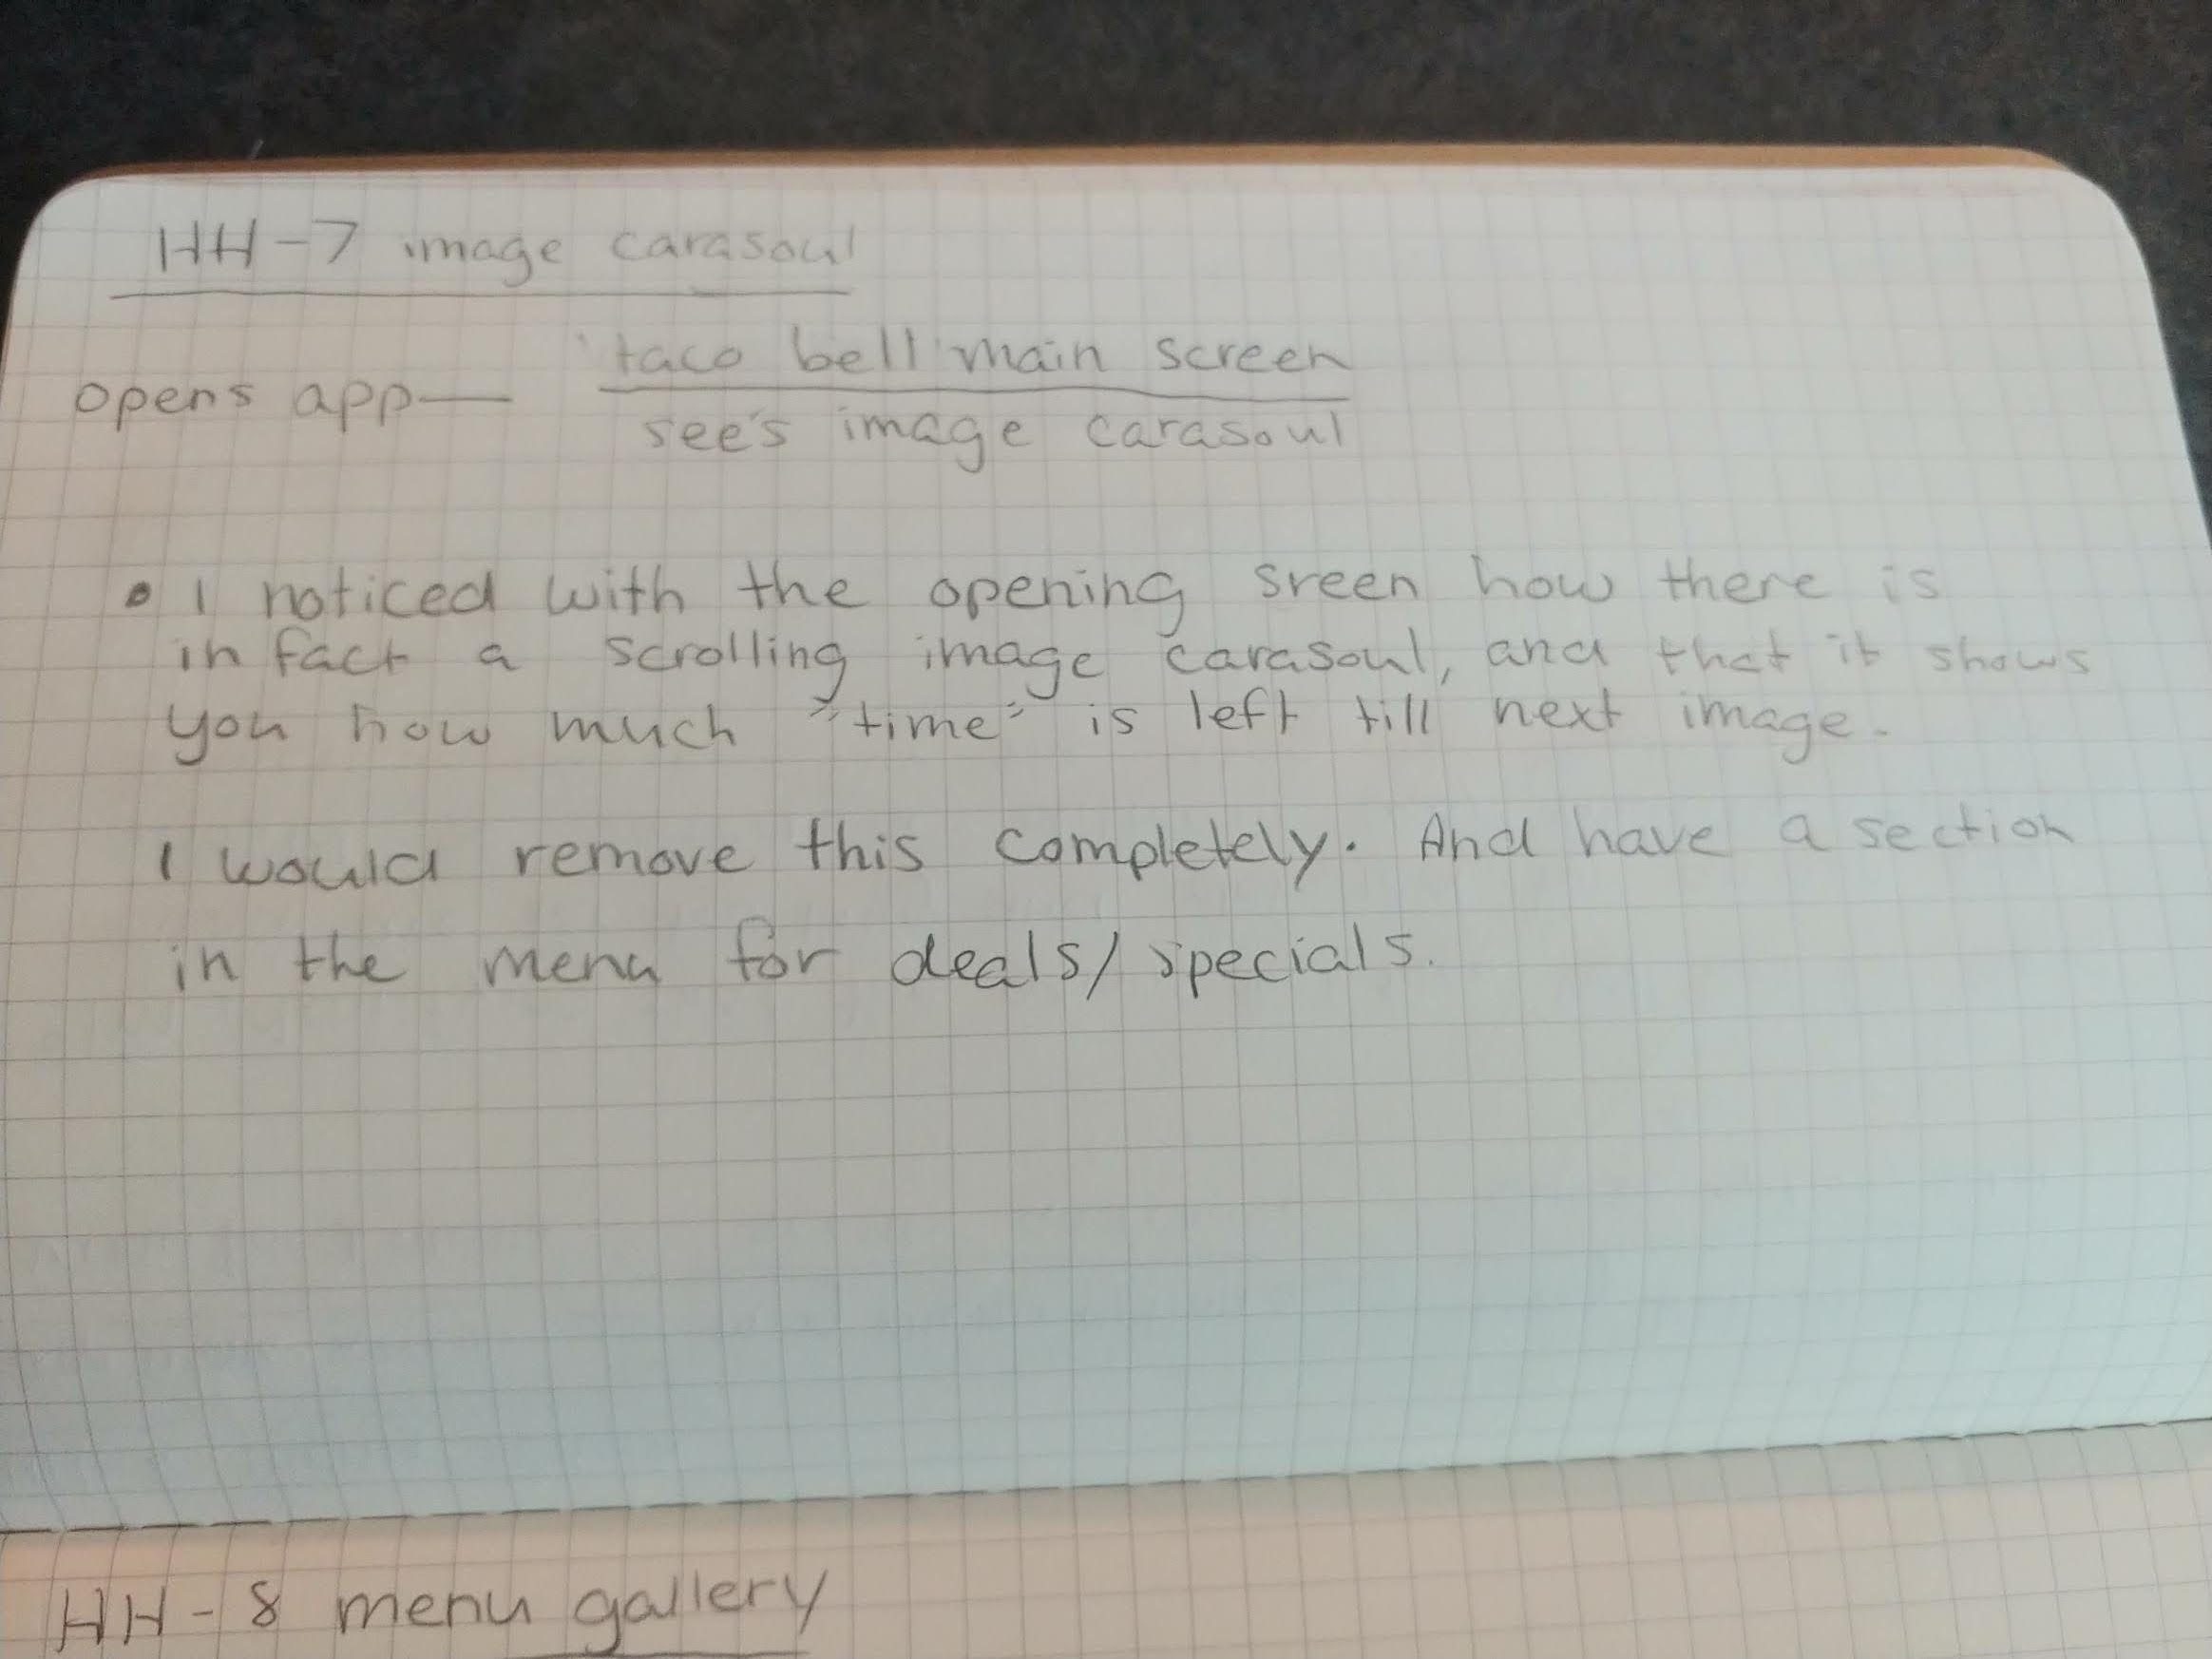 HH-7 image carasoul
opens app— taco bell main screen
see's image carasoul
• I noticed with the opening sreen how there is
in fact a scrolling image carasoul, and that it shows
you how much "time" is left till next image.
I would remove this completely. And have a section
in the menu for deals/specials.
HH-8 menu gallery